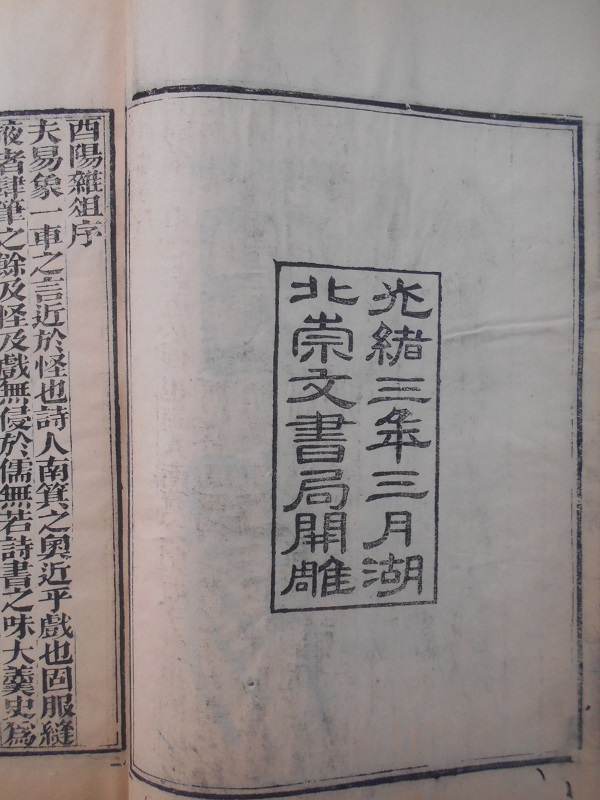 光緒三年三月湖
北崇文書局開雕
酉陽雜俎序
夫易象一車之言近於怪也詩人南箕之奧近乎戲也固服縫
掖者肆筆之餘及怪及戲無侵於儒無若詩書之味大羹史為